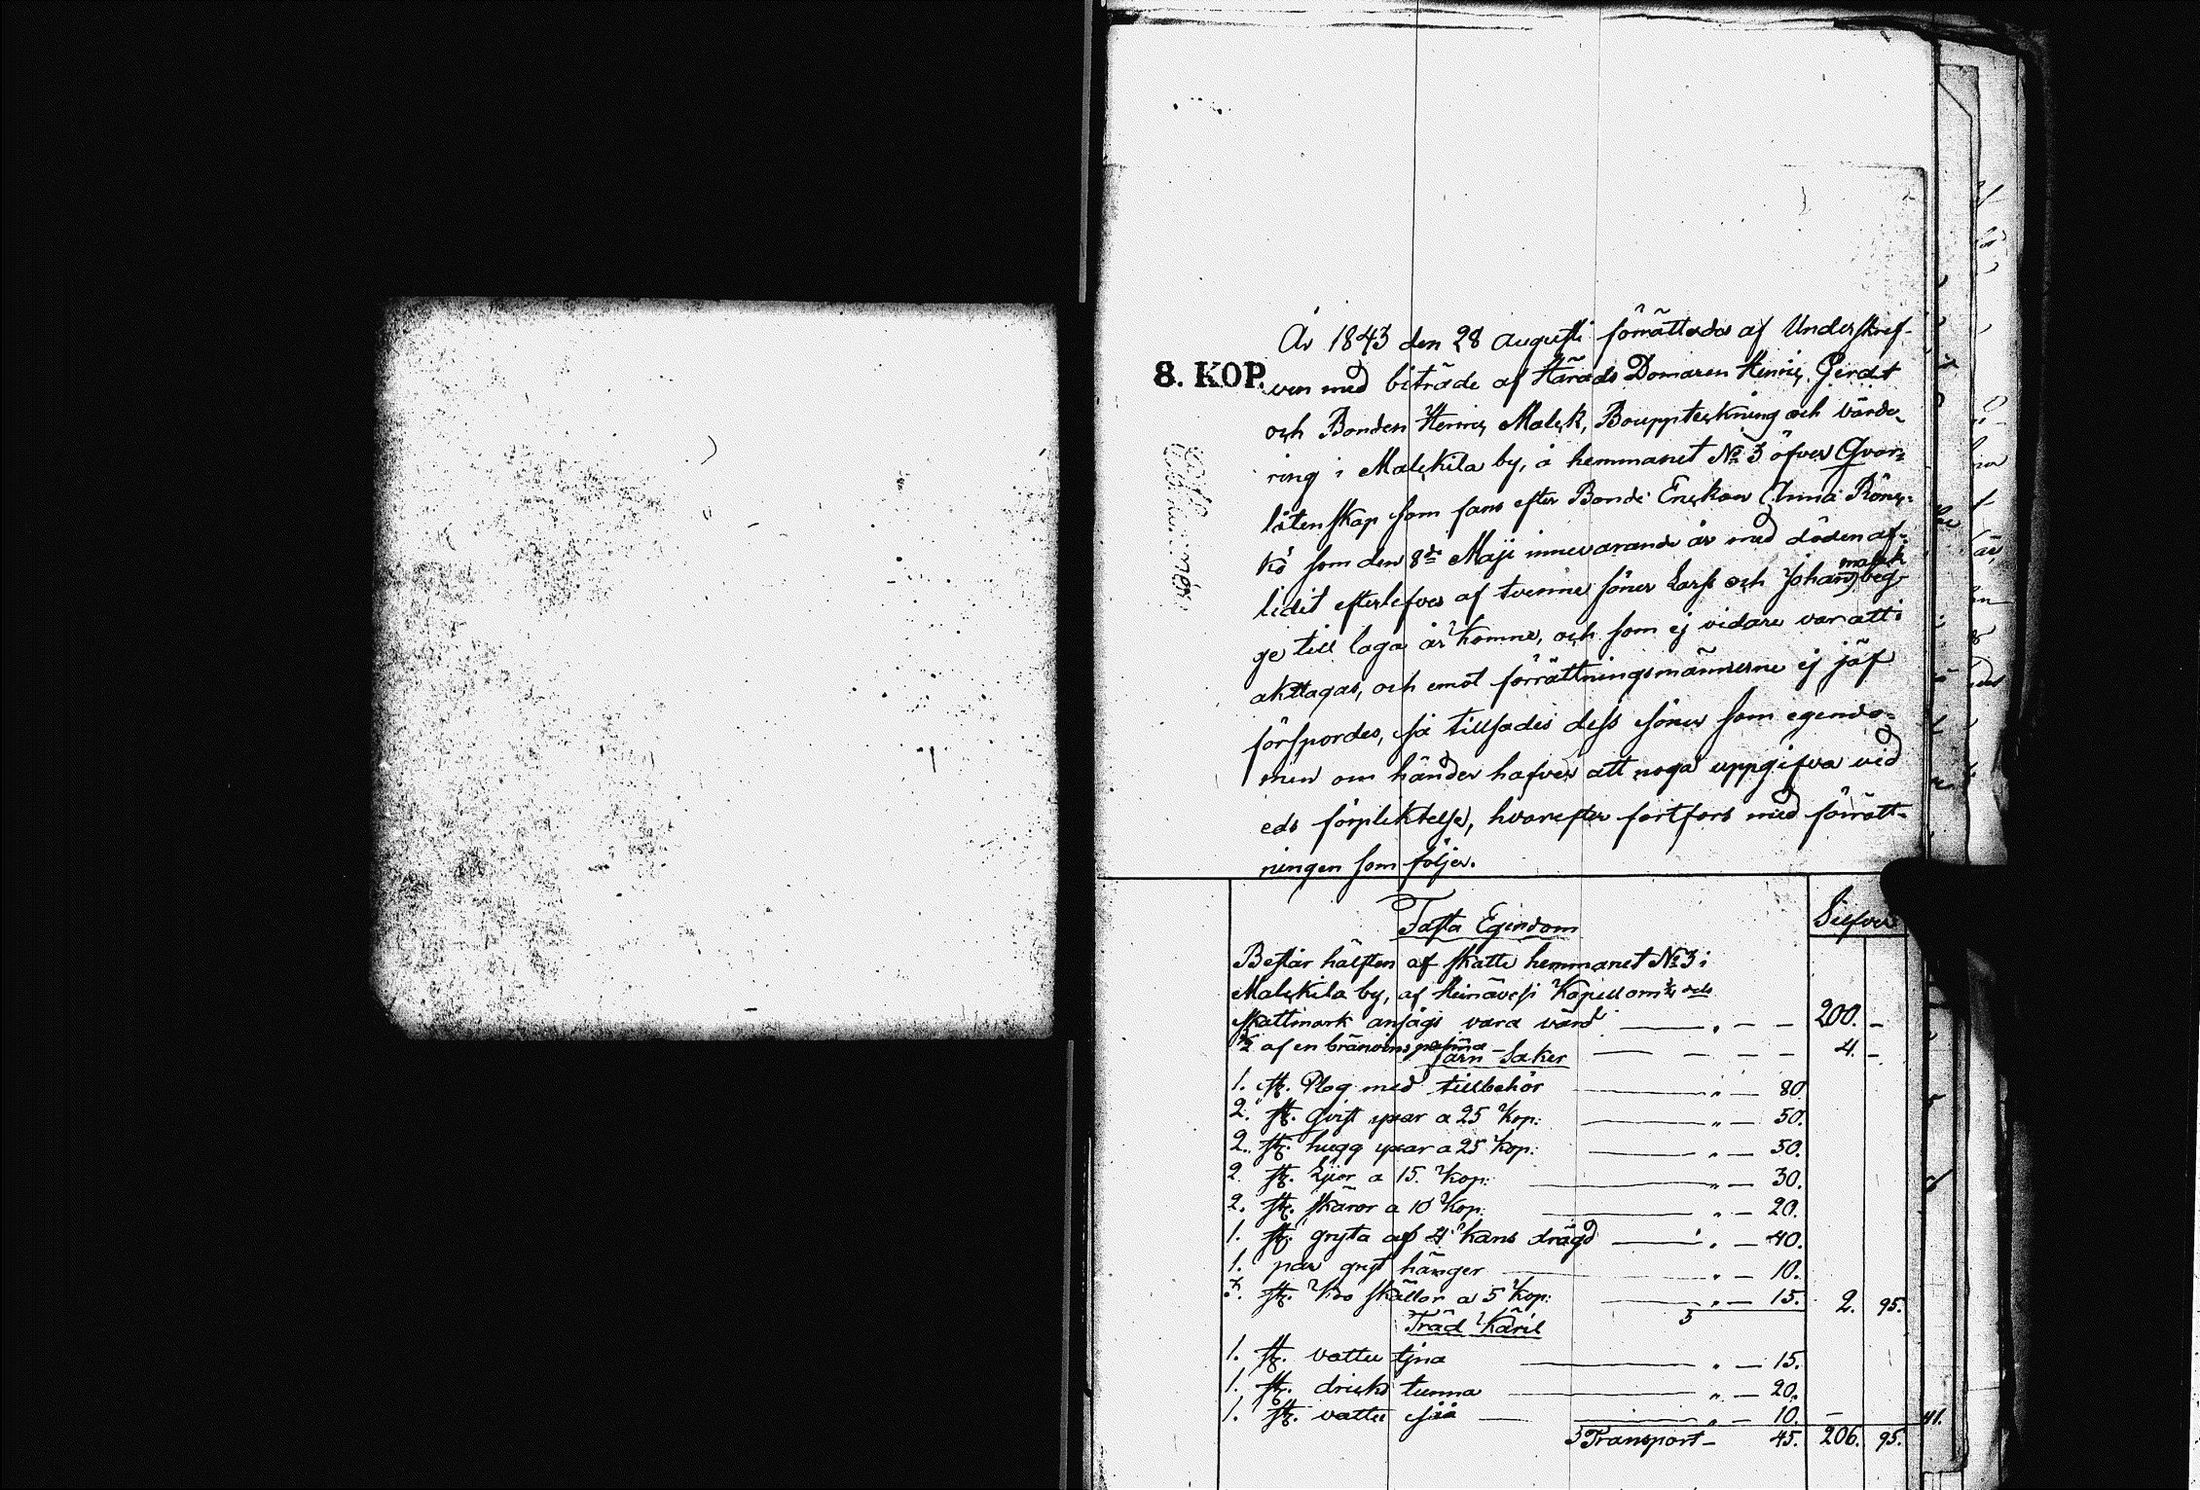 År 1843 den 28 Augusti förrättades af Underskref-
8. KOP.
ven med biträde af Härads Domaren Henric Gerdt
och Bonden Henric Malck, Bouppteckning och värde-
ring i Malckila by, å hemmanet No 3 öfver Qvar-
låtenskap som fans efter Bonde Enckan Anna Rönc-
kö som den 8de Maji innevarande år med döden af-
lidit efterlefves af tvenne söner Larss och Johan Malck beg-
ge till laga år komne, och som ej vidare var att i
akttagas, och emot förrättningsmännerne ej jäf
förspordes, så tillsades dess söner som egendo-
men om händer hafver att noga uppgifva vid
eds förpliktelse, hvarefter fortfors med förrätt-
ningen som följer.
Silfver
Fasta Egendom
Består hälften af skatte hemmanet No 3 i
Malckila by, af Heinävesi Kapell om dels
skattmark ansågs vara värd " — — 200. —
1/2 af en bränvins panna — — — — 4. —
Järn Saker
1. st. Plog med tillbehör " — 80.
2. st. qvist yxar a 25 Kop: " — 50.
2. st. hugg yxar a 25 Kop: " — 50.
2. st. Lijor a 15. Kop: " — 30.
2. st. skäror a 10 Kop: " — 20.
1. st. gryta af 4 kans drägd " — 40.
1. par gryt hänger " — 10.
3. st. Ko skällor a 5 Kop: " — 15. 2. 95.
Träd Käril
1. st. vattu tjna " — 15.
1. st. dricks tunna " — 20.
1. st. vattu så " — 10. —
Transport — 45. 206. 95.